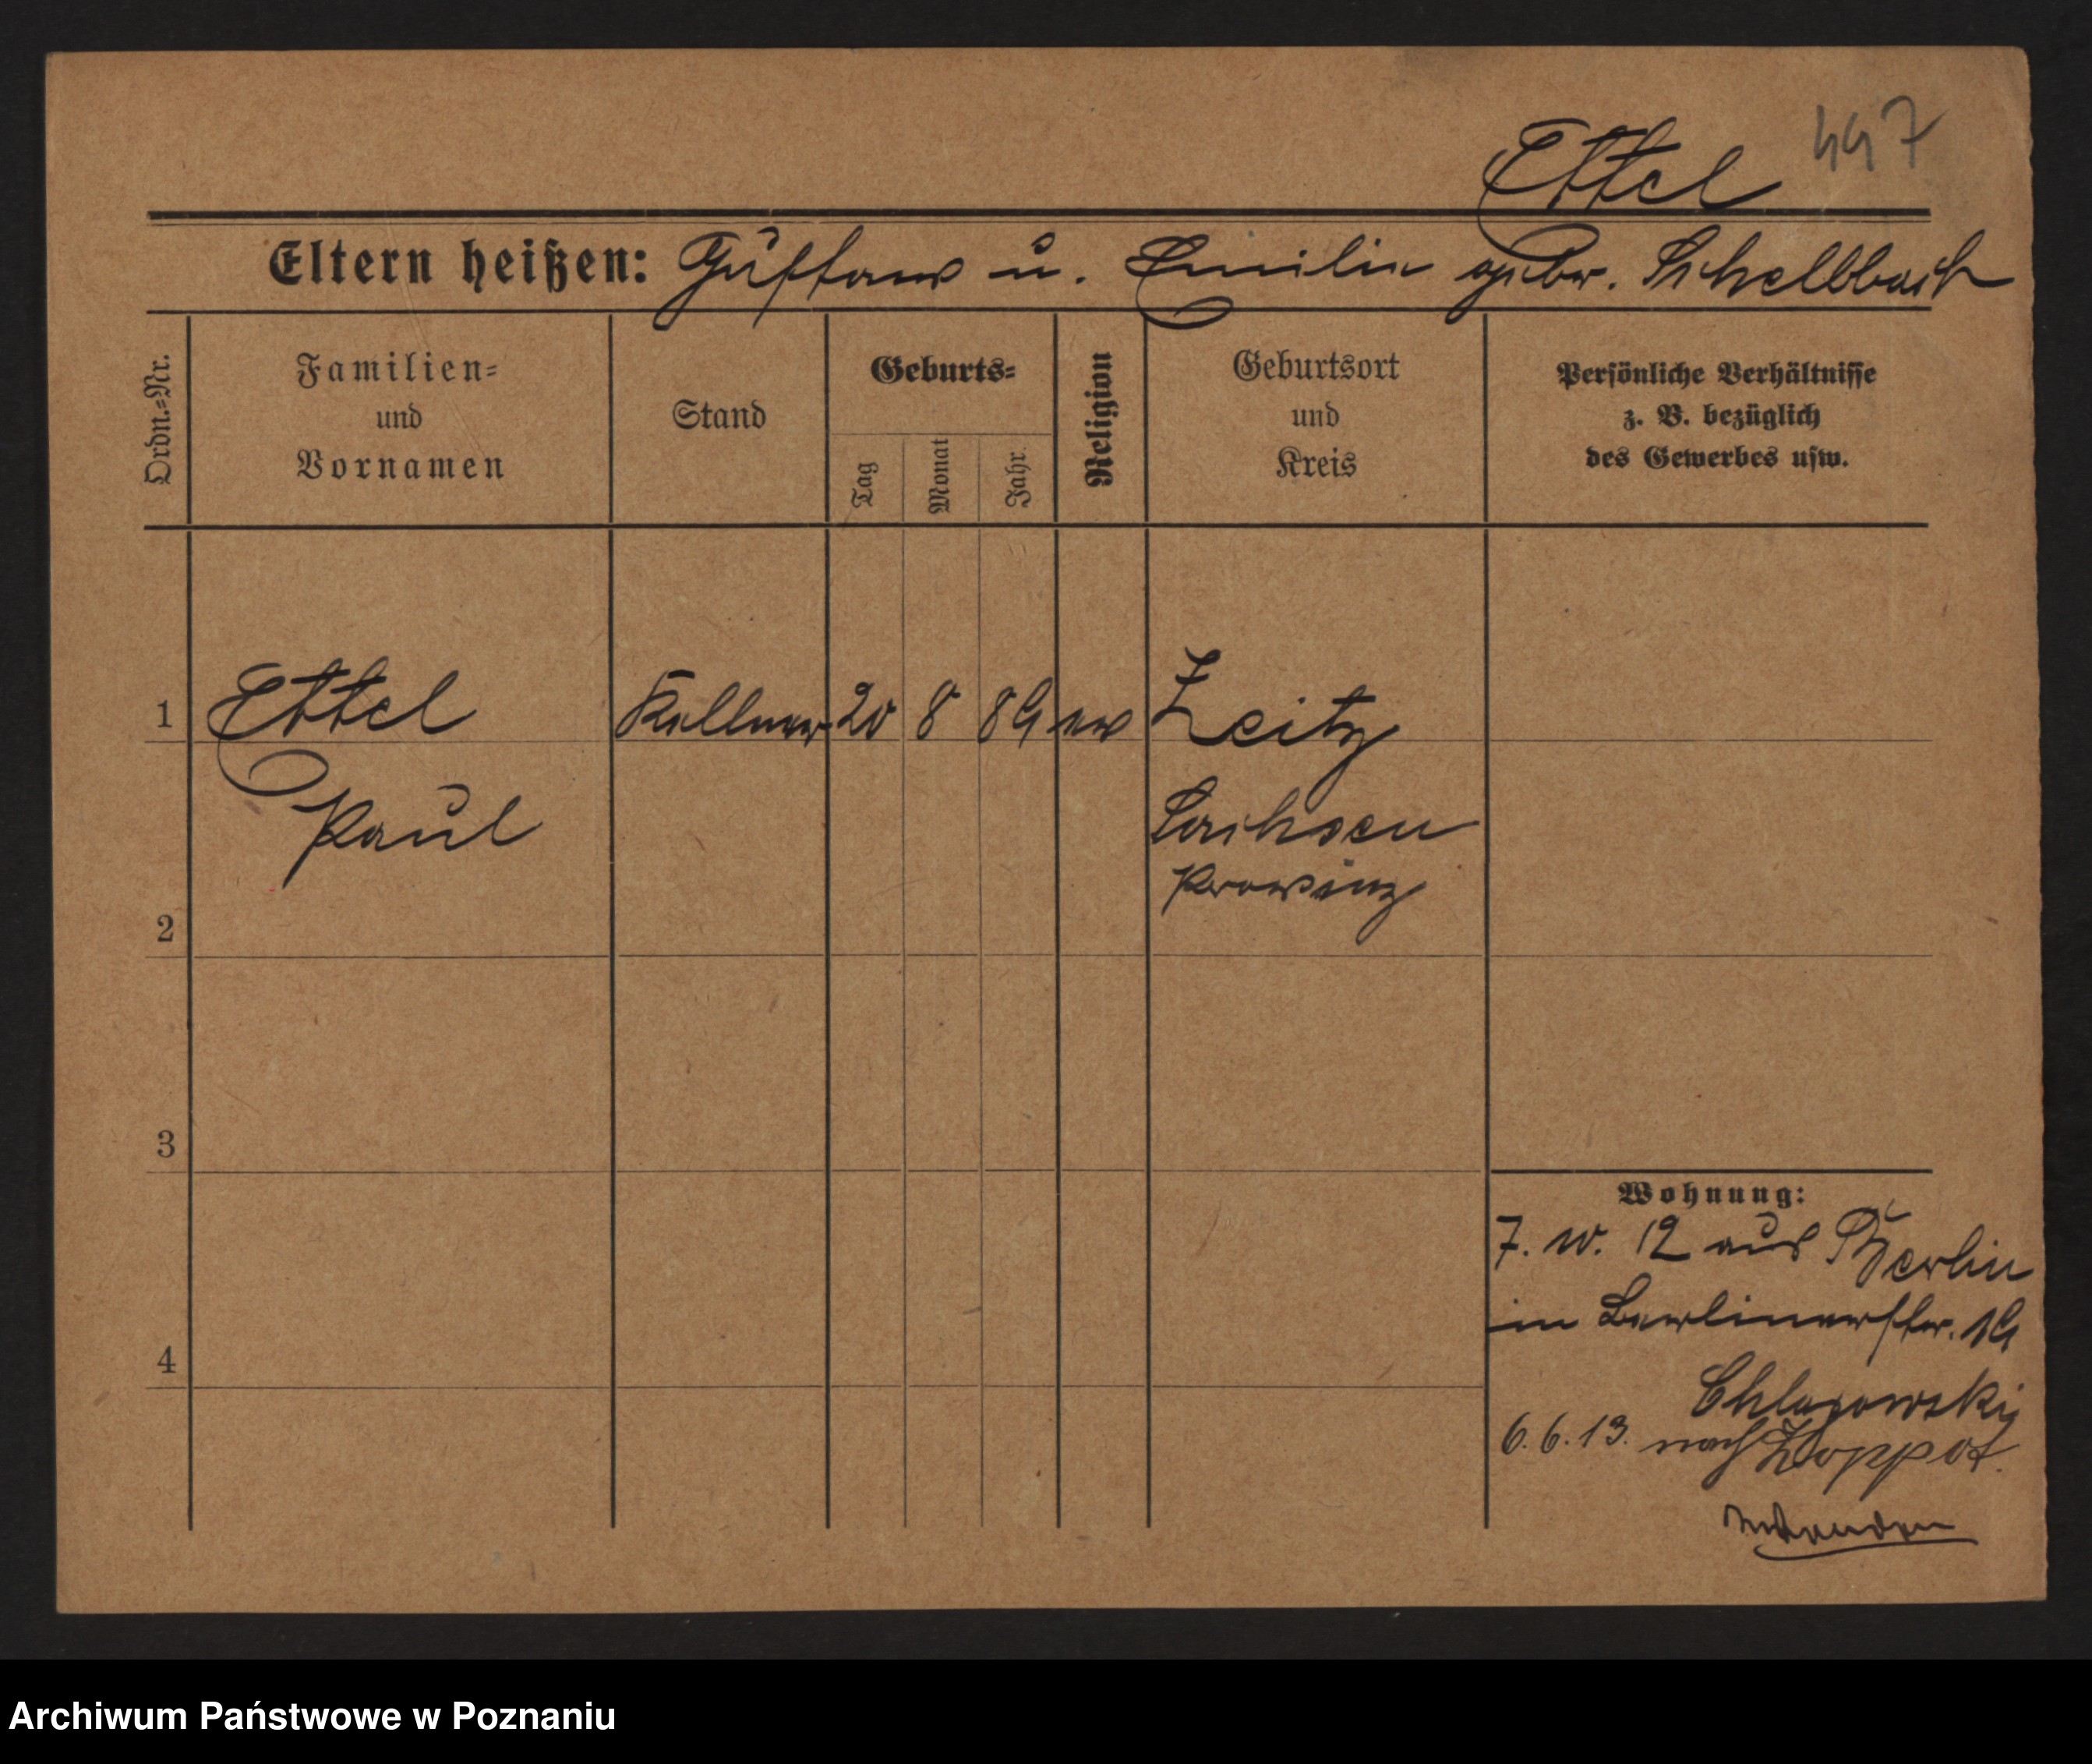 Ettel 447
Eltern heißen: Gustav u. Emilie gebor. Schellbach
Ordn.-Nr.
Familien-
und
Vornamen
Stand
Geburts-
Tag
Monat
Jahr.
Religion
Geburtsort
und
Kreis
Persönliche Verhältnisse
z. B. bezüglich
des Gewerbes usw.
1 Ettel Kellner 20 8 89 ev Zeitz
Paul Sachsen
Provinz
2
3
4
Wohnung:
7. 10. 12 aus Berlin
in Berlinerstr. 19
Chlapowski
6. 6. 13. nach Zoppot.
Archiwum Państwowe w Poznaniu